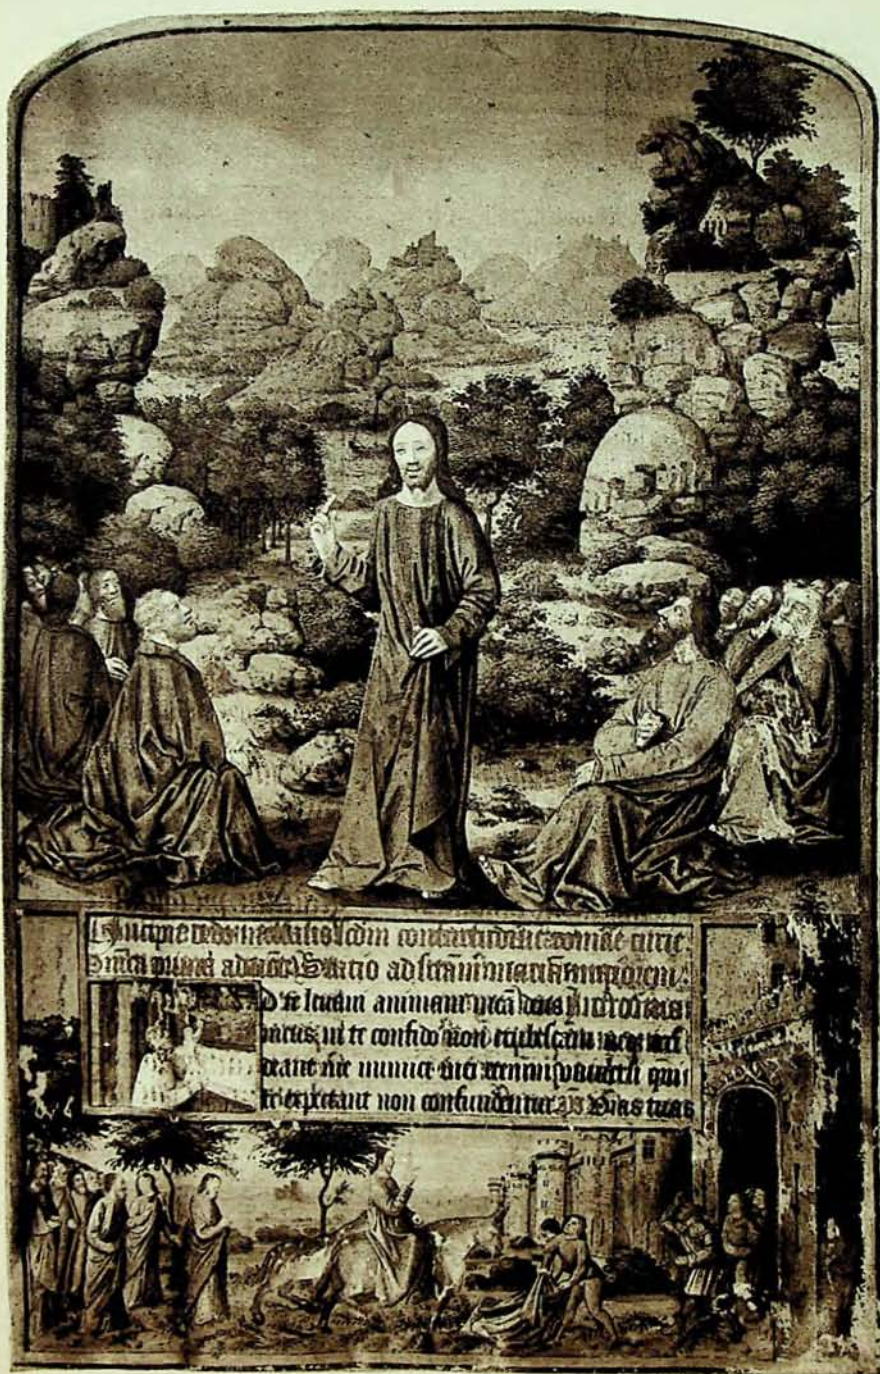 Incipit missalis scdm consuetudinē romāe curie
Dnica prima adventꝰ Statio ad sctam mariā maiorem
Ad te levavi animam meā deus
meus in te confido non erubescam neq irri
deant me inimici mei etenim universi qui
te expectant non confundentur Vias tuas